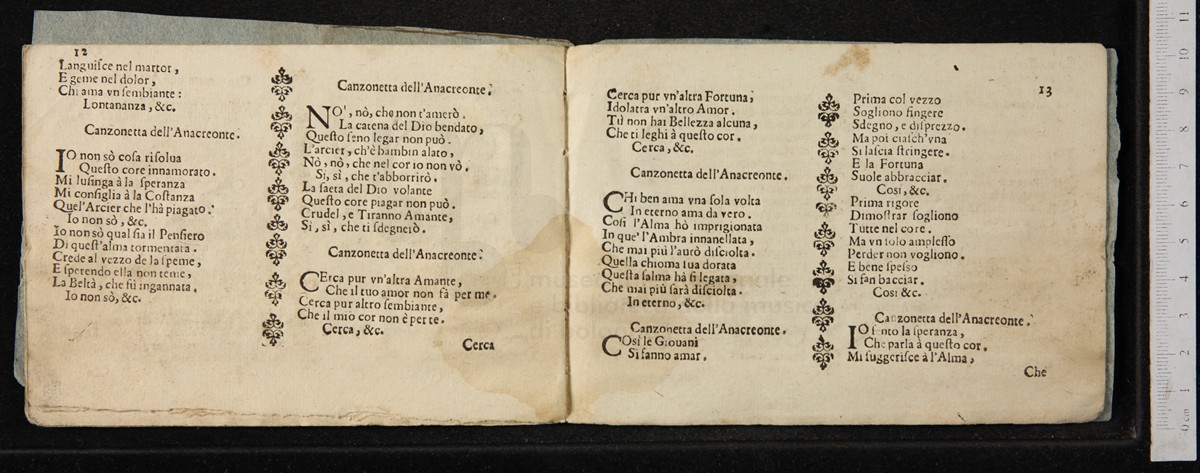 12
Languiſce nel martor,
E geme nel dolor,
Chi ama vn ſembiante:
Lontananza, &c.
Canzonetta dell'Anacreonte.
IO non sò coſa riſolua
Queſto core innamorato.
Mi luſinga à la ſperanza
Mi conſiglia à la Coſtanza
Quel'Arcier che l'hà piagato.
Io non sò, &c.
Io non sò qual ſia il Penſiero
Di queſt'alma tormentata.
Crede al vezzo de la ſpeme,
E ſperendo ella non teme,
La Beltà, che fù ingannata.
Io non sò, &c.
Canzonetta dell'Anacreonte.
NO', nò, che non t'amerò.
La catena del Dio bendato,
Queſto ſeno legar non può.
L'arcier, ch'è bambin alato,
Nò, nò, che nel cor io non vò.
Si, sì, che t'abborrirò.
La ſaeta del Dio volante
Queſto core piagar non può.
Crudel, e Tiranno Amante,
Si, sì, che ti ſdegnerò.
Canzonetta dell'Anacreonte.
CErca pur vn'altra Amante,
Che il tuo amor non fà per me.
Cerca pur altro ſembiante,
Che il mio cor non è per te.
Cerca, &c.
Cerca
13
Cerca pur vn'altra Fortuna,
Idolatra vn'altro Amor.
Tù non hai Bellezza alcuna,
Che ti leghi à queſto cor.
Cerca, &c.
Canzonetta dell'Anacreonte.
CHi ben ama vna ſola volta
In eterno ama da vero.
Coſi l'Alma hò imprigionata
In que' l'Ambra innanellata,
Che mai più l'aurò diſciolta.
Quella chioma tua dorata
Queſta ſalma hà ſi legata,
Che mai più ſarà diſciolta.
In eterno, &c.
Canzonetta dell'Anacreonte.
COſi le Giouani
Si fanno amar.
Prima col vezzo
Sogliono fingere
Sdegno, e diſprezzo.
Ma poi ciaſch'vna
Si laſcia ſtringere.
E la Fortuna
Suole abbracciar.
Coſi, &c.
Prima rigore
Dimoſtrar ſogliono
Tutte nel core.
Ma vn ſolo ampleſſo
Perder non vogliono.
E bene ſpeſſo
Si fan bacciar.
Coſi &c.
Canzonetta dell'Anacreonte.
IO ſento la ſperanza,
Che parla à queſto cor.
Mi ſuggeriſce à l'Alma,
Che